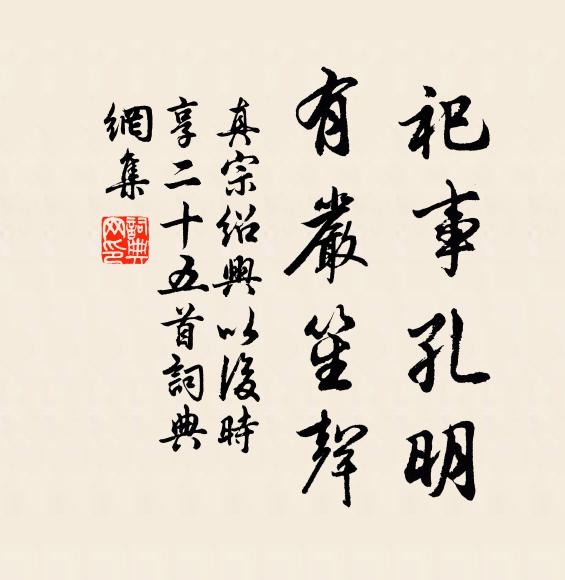 祀事孔明
有嚴笙聲
真宗紹興以後時
享二十五首詞典
網集
詞典
网印